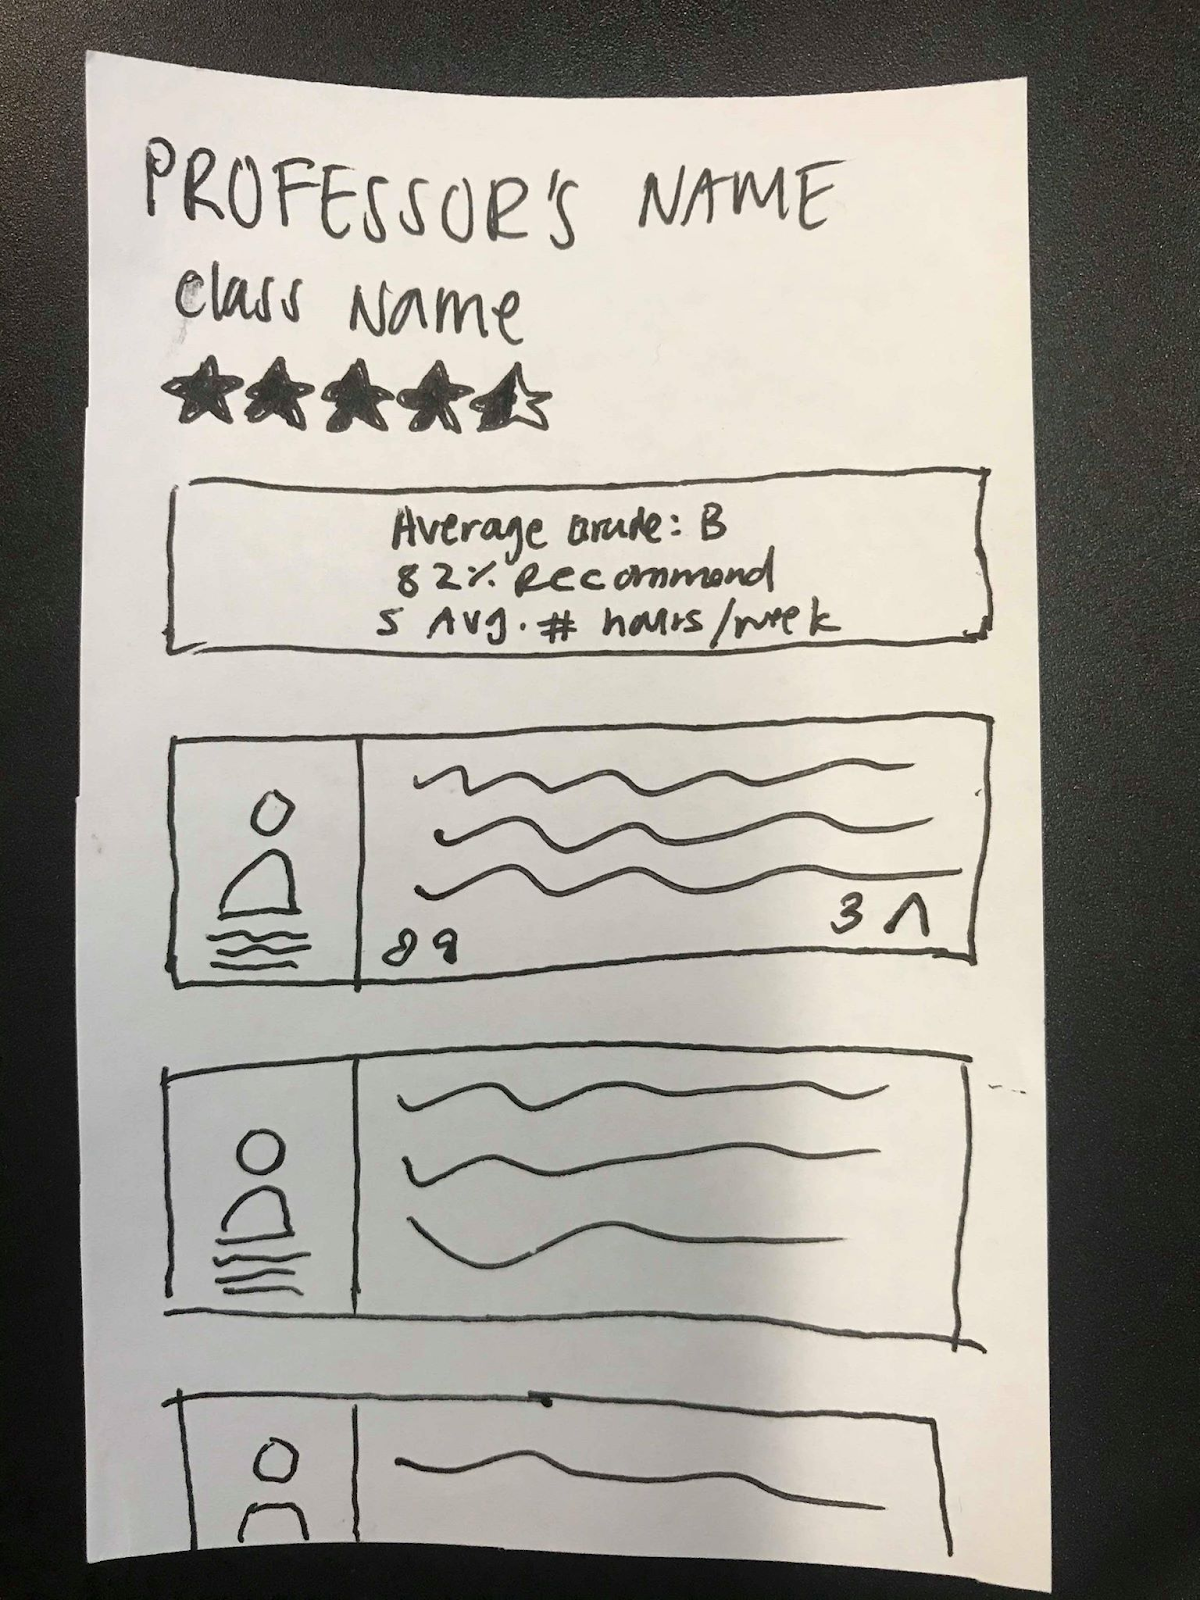 PROFESSOR'S NAME
Class Name
Average Grade: B
82% Recommend
5 Avg. # hours/week
3 ^